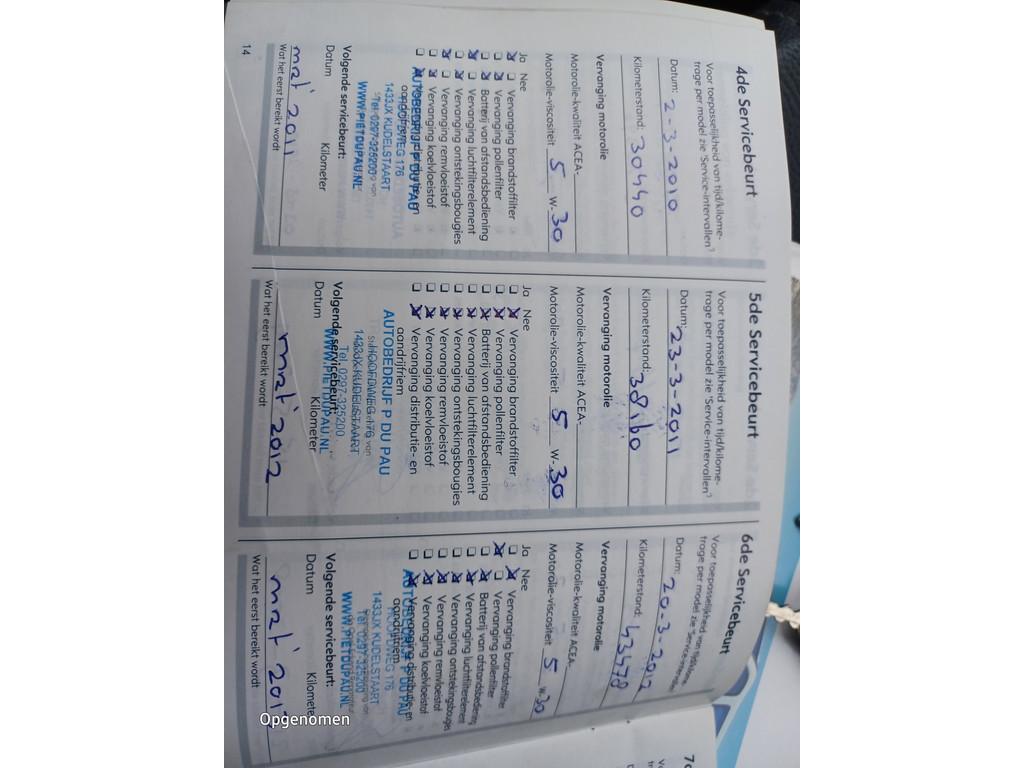 4de Servicebeurt
Voor toepasselijkheid van tijd/kilome-
trage per model zie 'Service-intervallen'!
Datum: 2-3-2010
Kilometerstand: 30440
Vervanging motorolie
Motorolie-kwaliteit ACEA-
Motorolie-viscositeit 5 W- 30
Ja Nee
Vervanging brandstoffilter
Vervanging pollenfilter
Batterij van afstandsbediening
Vervanging luchtfilterelement
Vervanging ontstekingsbougies
Vervanging remvloeistof
Vervanging koelvloeistof
AUTOBEDRIJF P DU PAU
1433JX KUDELSTAART
Tel. 0297-325200
WWW.PIETDUPAU.NL
Volgende servicebeurt:
Datum Kilometer
mrt' 2011
Wat het eerst bereikt wordt
14
5de Servicebeurt
Voor toepasselijkheid van tijd/kilome-
trage per model zie 'Service-intervallen'!
Datum: 23-3-2011
Kilometerstand: 38160
Vervanging motorolie
Motorolie-kwaliteit ACEA-
Motorolie-viscositeit 5 W- 30
Ja Nee
Vervanging brandstoffilter
Vervanging pollenfilter
Batterij van afstandsbediening
Vervanging luchtfilterelement
Vervanging ontstekingsbougies
Vervanging remvloeistof
Vervanging koelvloeistof
Vervanging distributie- en
aandrijfriem
AUTOBEDRIJF P DU PAU
HOOFDWEG 176
1433JX KUDELSTAART
Tel 0297-325200
WWW.PIETDUPAU.NL
Volgende servicebeurt:
Datum Kilometer
mrt' 2012
Wat het eerst bereikt wordt
6de Servicebeurt
Voor toepasselijkheid van tijd/kilome-
trage per model zie 'Service-intervallen'!
Datum: 20-3-2012
Kilometerstand: 43478
Vervanging motorolie
Motorolie-kwaliteit ACEA-
Motorolie-viscositeit 5 W- 30
Ja Nee
Vervanging brandstoffilter
Vervanging pollenfilter
Batterij van afstandsbediening
Vervanging luchtfilterelement
Vervanging ontstekingsbougies
Vervanging remvloeistof
Vervanging koelvloeistof
Vervanging distributie- en
aandrijfriem
AUTOBEDRIJF P DU PAU
HOOFDWEG 176
1433JX KUDELSTAART
Tel 0297-325200
WWW.PIETDUPAU.NL
Volgende servicebeurt:
Datum Kilomete
mrt' 201
Wat het eerst bereikt wordt
Opgenomen